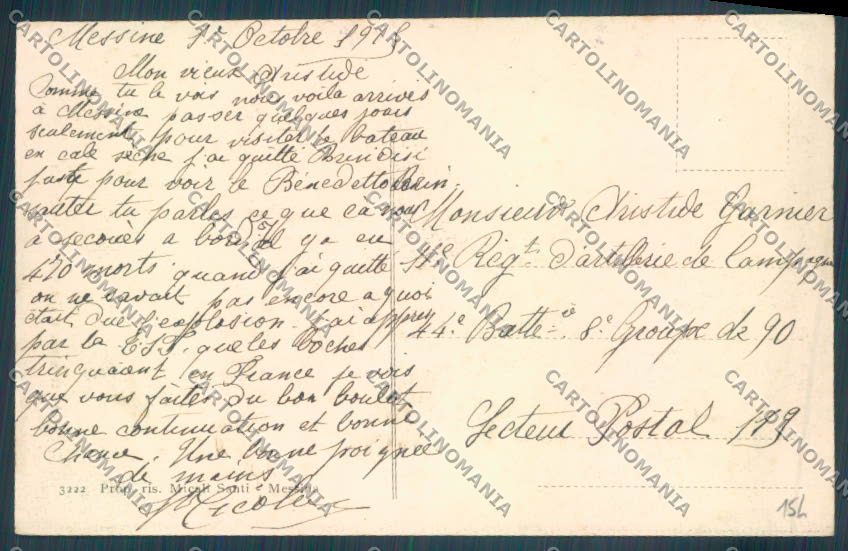 Messine 1r Octobre 1915
Mon vieux Aristide
Comme tu le vois nous voila arrivés
à Messine passer quelques jours
seulement pour visiter le bateau
en cale sèche j'ai quitté Brindisi
juste pour voir le Bénedetto Brin
sauter tu parles ce que ca nous
a secoués a bord Il y a eu
420 morts quand j'ai quitté
on ne savait pas encore a quoi
était due l'explosion. J'ai appris
par la TSF que les Boches
trinquaient en France je vois
que vous faites du bon boulot
bonne continuation et bonne
chance. Une bonne poignée
de mains
Nicolas
Monsieur Aristide Garnier
Régt d'artillerie de Campagne
44e Battie 8e Groupe de 90
Secteur Postal 179
3222 Prop. ris. Micali Santi - Messina
154
CARTOLINOMANIA